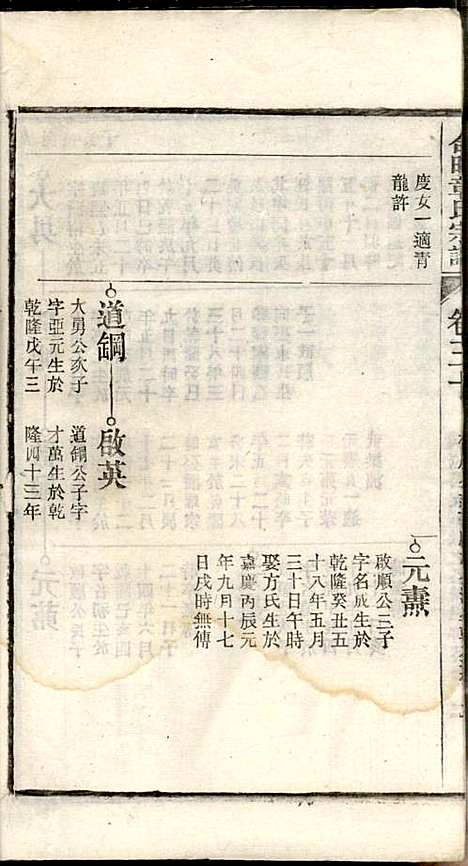 度女一適青
龍許
元燾
啟順公三子
字名成生於
乾隆癸丑五
十八年五月
三十日午時
娶方氏生於
嘉慶丙辰元
年九月十七
日戌時無傳
道鋼
大勇公次子
字亞元生於
乾隆戊午三
啟英
道鋼公子字
才萬生於乾
隆四十三年
章氏宗譜
卷三十